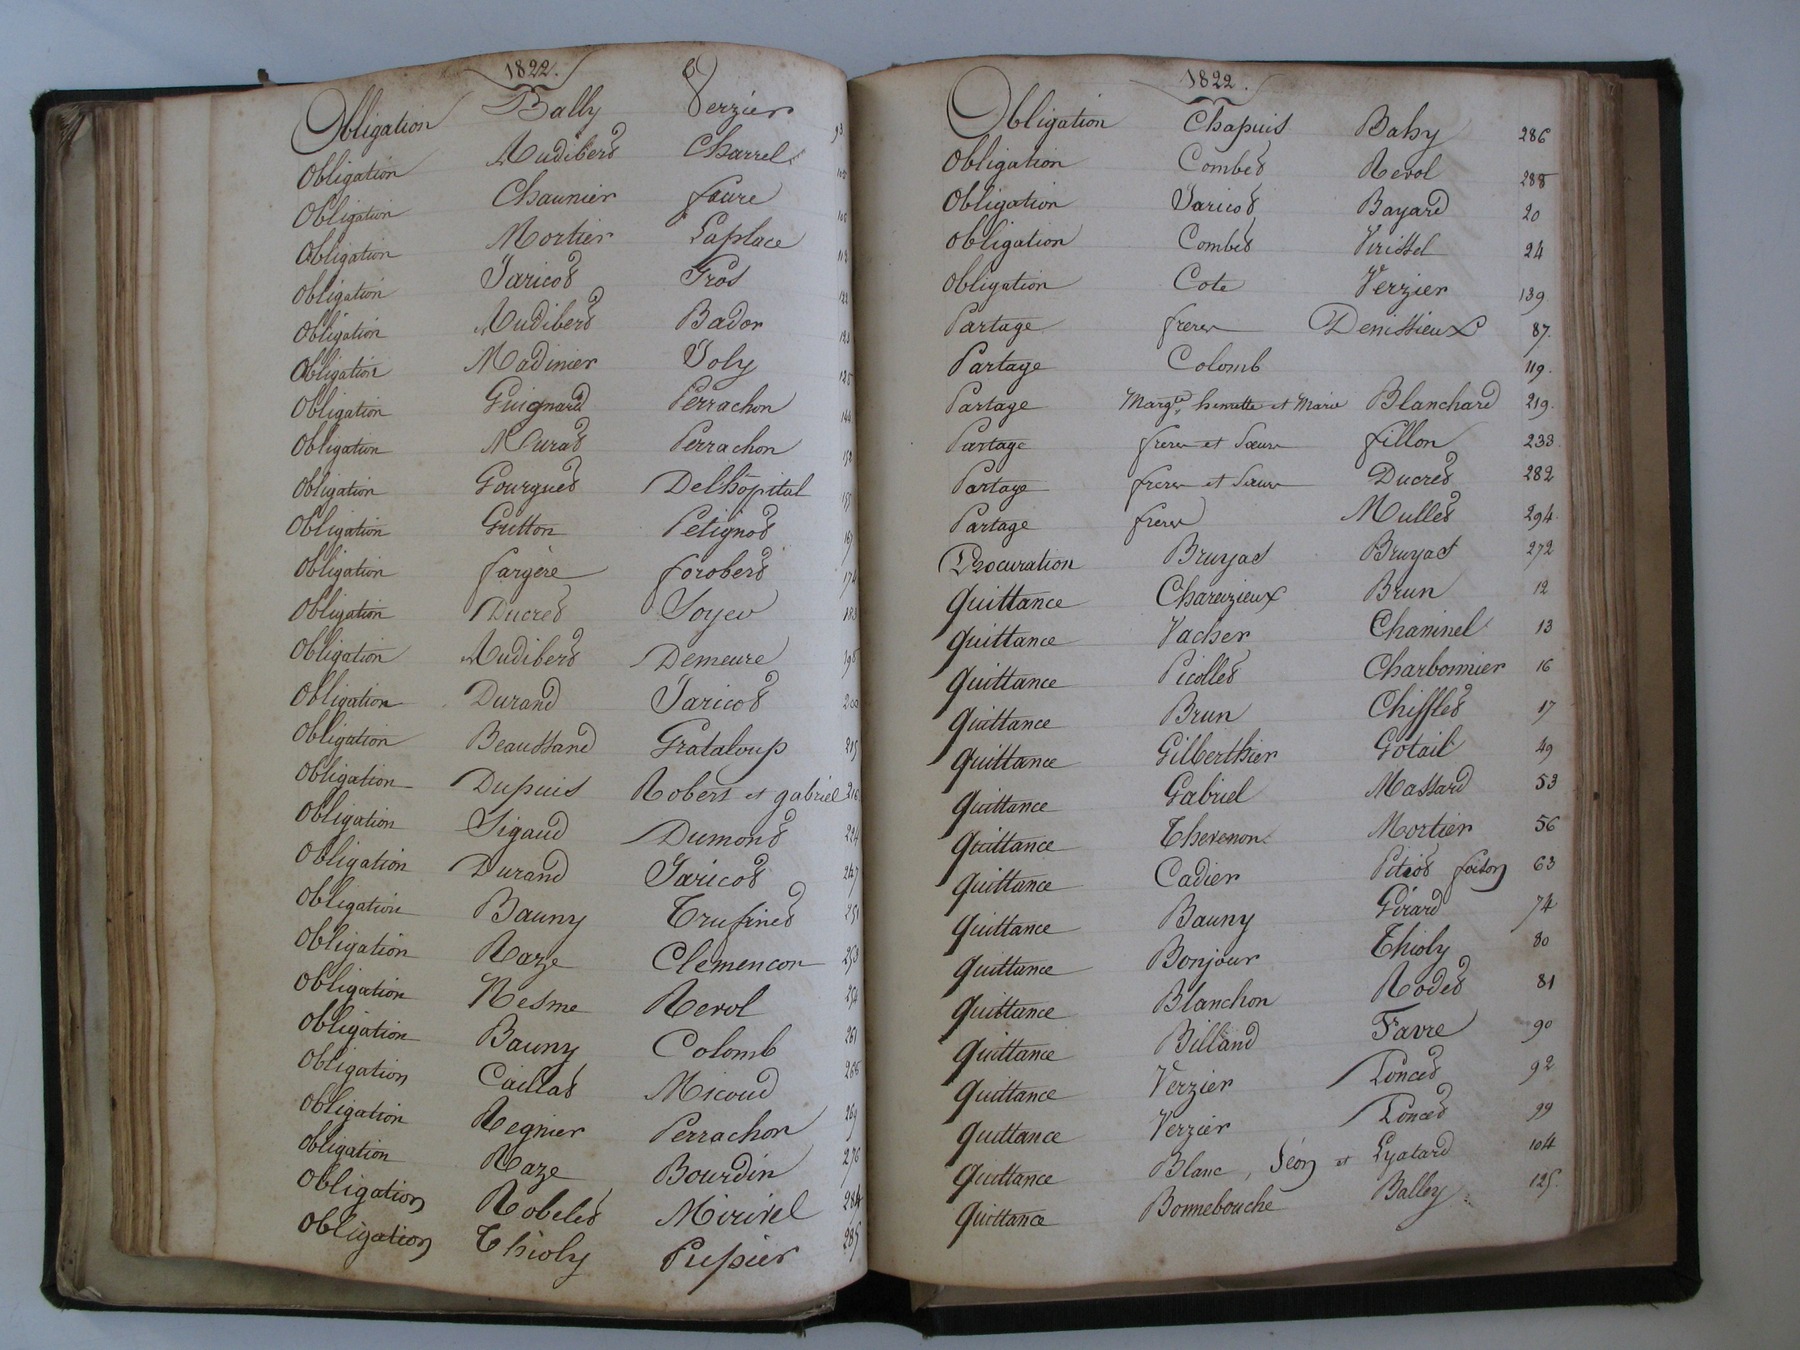 1822.
Obligation Bally Verzier 93
Obligation Audiberd Charrel
Obligation Chaunier faure
Obligation Mortier Laplace
Obligation Jaricod Gros
Obligation Audiberd Bador
Obligation Madinier Joly
Obligation Guignard Perrachon
Obligation Murad Perrachon
Obligation Gourgued Delhopital
Obligation Gutton Petignod
Obligation fargère foroberd
Obligation Ducred
Obligation Audiberd Demeure
Obligation Durand Jaricod 200
Obligation Beaussand Grataloup 215
Obligation Dupuis Robert et gabriel 216
Obligation Sigaud Dumond 224
Obligation Durand Jaricod 247
Obligation Bauny Trufined 251
Obligation Raze Clemencon 253
Obligation Nesme Revol 254
Obligation Bauny Colomb 261
Obligation Caillad Micoud 268
Obligation Regnier Perrachon 269
Obligation Raze Bourdin 276
Obligation Robeled Mirivel 284
Obligation Thioly Pupier 285
1822.
Obligation Chapuis Bahy 286
Obligation Combed Revol 288
Obligation Jaricod Bayard 20
Obligation Combed Virissel 24
Obligation Cote Verzier 139
Partage freres Denissieux 87.
Partage Colomb 119.
Partage Margte, henriette et Marie Blanchard 219.
Partage freres et Sœurs fillon 233
Partage freres et Sœurs Ducred 282
Partage freres Mulled 294.
Procuration Bruyas Bruyas 272
Quittance Charezieux Brun 12
Quittance Vacher Chaninel 13
Quittance Picolled Charbonnier 16
Quittance Brun Chiffled 17
Quittance Gilberthier Gotail 49
Quittance Gabriel Massard 53
Quittance Thevenon Mortier 56
Quittance Cadier 63
Quittance Bauny Girard 74
Quittance Bonjour Thioly 80
Quittance Blanchon Roded 81
Quittance Billand Favre 90
Quittance Verzier Ponced 92
Quittance Verzier Ponced 99
Quittance Blanc, Séon et Lyatard 104
Quittance Bonnebouche Balley 125.